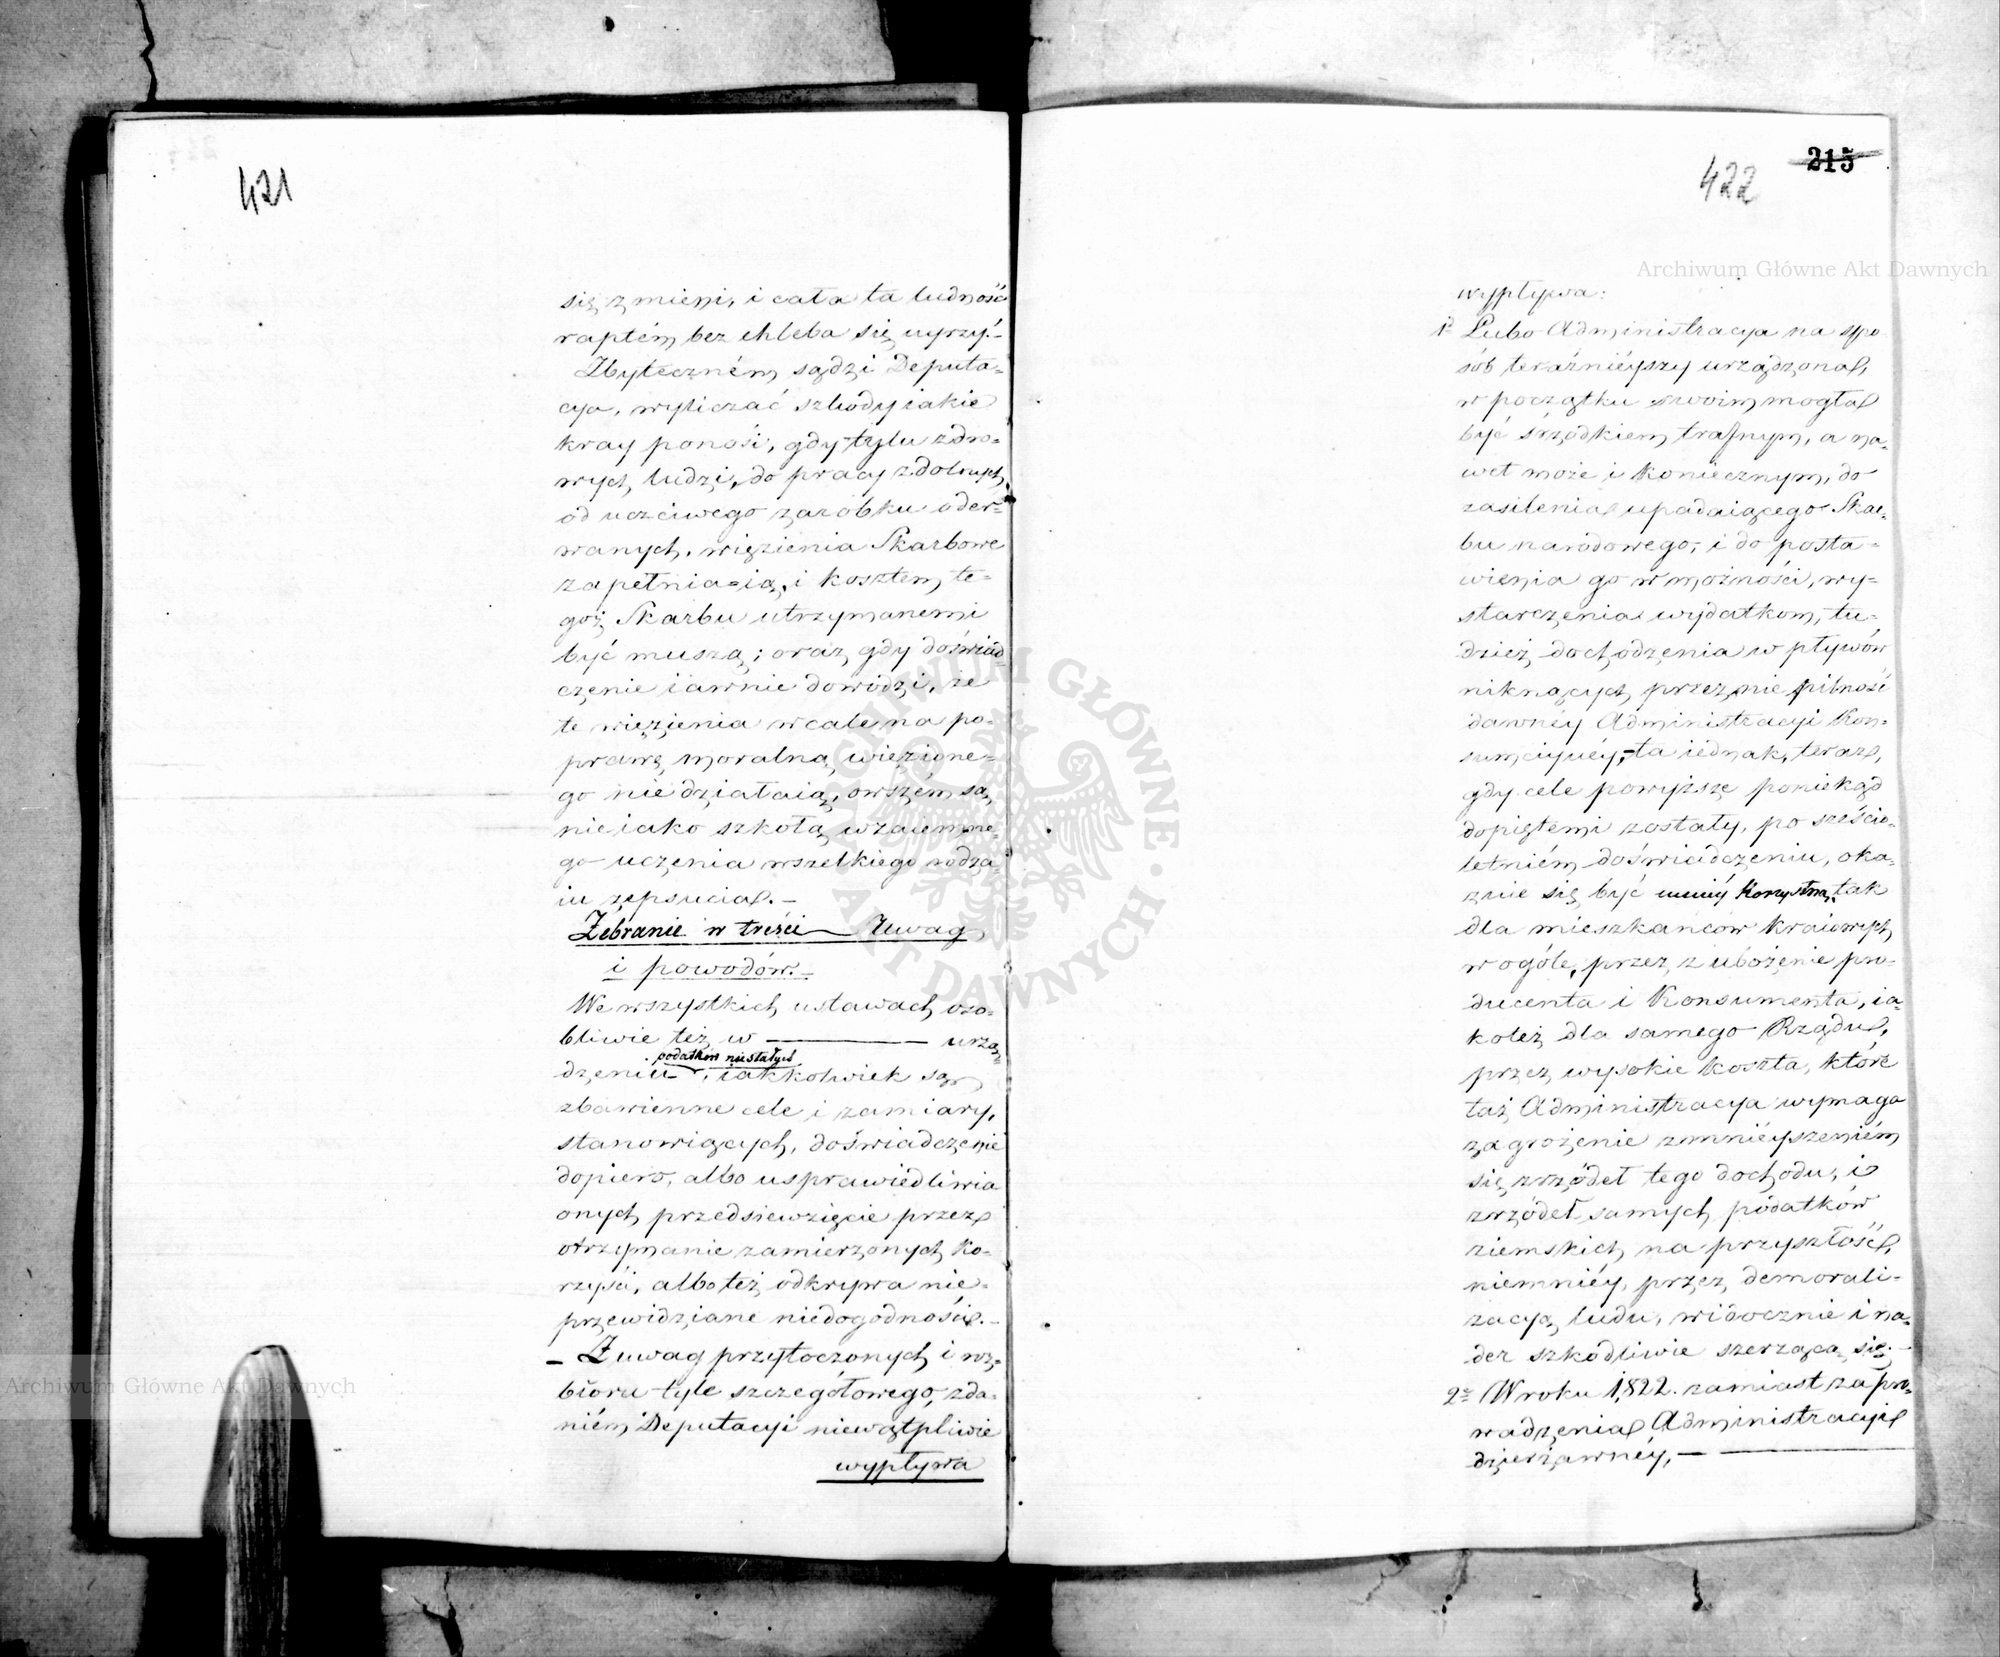 421
się zmieni, i cała ta ludność
raptém bez chleba się uyrzy.–
Zbyteczném sądzi Deputa-
cya, wyliczać szkody iakie
kray ponosi, gdy tylu zdro-
wych ludzi, do pracy zdolnych,
od uczciwego zarobku oder-
wanych, więzienia Skarbowe
zapełniaią, i kosztem te-
goż Skarbu utrzymanemi
być muszą; oraz gdy doświad-
czenie iawnie dowodzi, że
te więzienia wcale na po-
prawę moralną więzione-
go nie działaią, owszém są,
nieiako szkołą wzaiemne-
go uczenia wszelkiego rodza-
iu zepsucia. –
Zebranie w treści Uwag
i powodów. –
We wszystkich ustawach, oso-
bliwie też w ——— urzą-
podatków niestałych
dzeniu, iakkolwiek są
zbawienne cele i zamiary,
stanowiących, doświadczenie
dopiero, albo usprawiedliwia
onych przedsiewzięcie przez
otrzymanie zamierzonych ko-
rzyści, albo też odkrywa nie-
przewidziane niedogodności. –
– Z uwag przytoczonych i roz-
bioru tyle szczegółowego, zda-
niém Deputacyi niewątpliwie
wypływa
215
422
wypływa:
1º Lubo Administracya na spo
sób teraźnieyszy urządzona,
w początku swoim mogła
być śrzodkiem trafnym, a na-
wet może i koniecznym, do
zasilenia upadaiącego Skar-
bu narodowego, i do posta-
wienia go w możności, wy-
starczenia wydatkom, tu-
dzież dochodzenia wpływów
niknących przez nie pilność
dawnéy Administracyi Kon-
sumcyinéy, – ta iednak, teraz,
gdy cele powyższe poniekąd
dopiętemi zostały, po sześcio-
letniém doświadczeniu, oka-
zuie się być mniéy korzystną, tak
dla mieszkańców kraiowych
w ogóle, przez zubożenie pro-
ducenta i Konsumenta, ia-
koteż dla samego Rządu,
przez wysokie koszta, które
taż Administracya wymaga
zagrożenie zmnieyszeniém
się zrzódeł tego dochodu, i
zrzódeł samych podatków
ziemskich na przyszłość,
niemniéy, przez demorali-
zacyą ludu, widocznie i na-
der szkodliwie szerzącą się. –
2º W roku 1822. zamiast zapro-
wadzenia Administracyi
dzierżawnéy, –
Archiwum Główne Akt Dawnych
Archiwum Główne Akt Dawnych
ARCHIWUM GŁÓWNE · AKT DAWNYCH ·